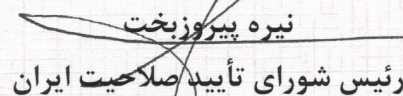 نیره پیروزبخت
رئیس شورای تأیید صلاحیت ایران